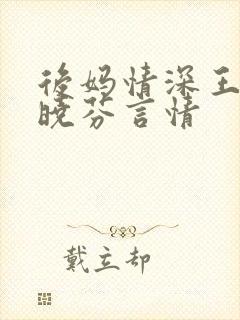 後妈情深王
晓芬言情
戴立却